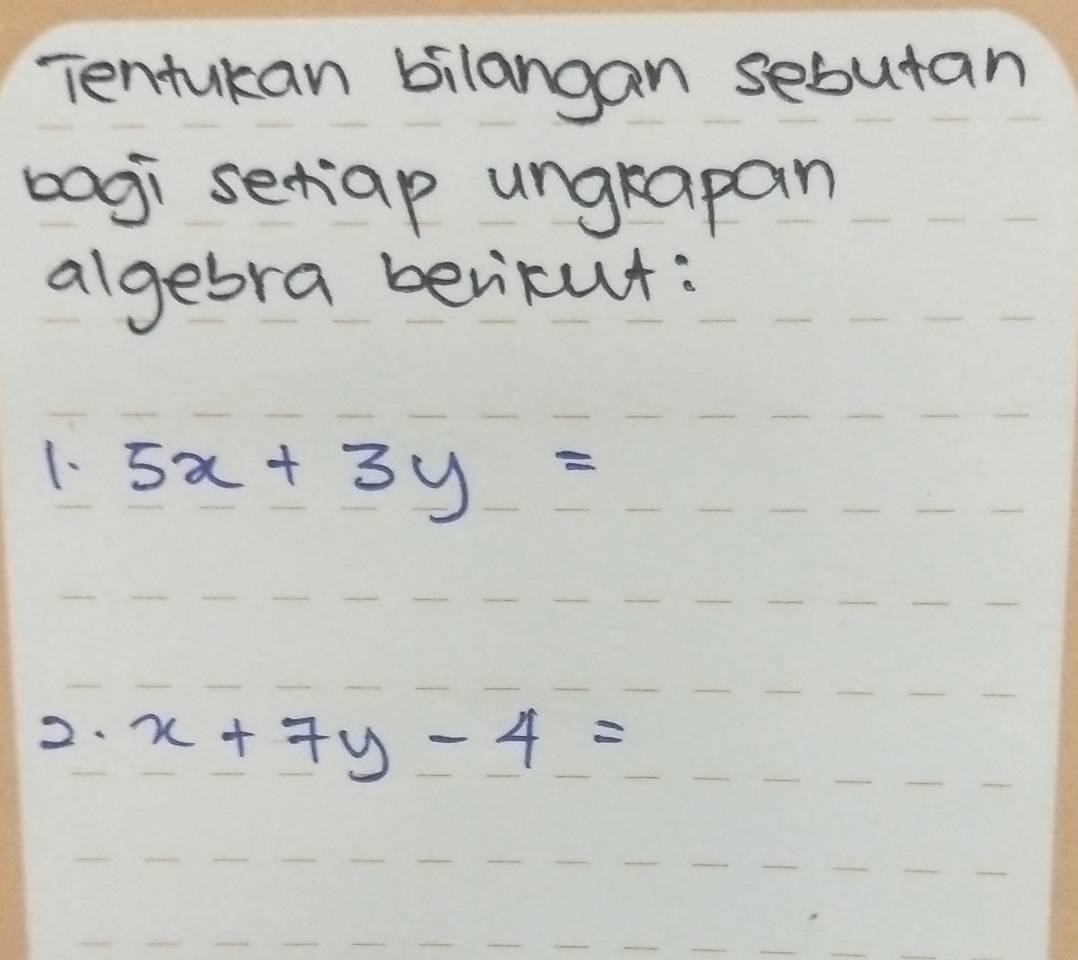 Tentukan bilangan sebutan
bagi setiap ungkapan
algebra berikut:
1. 5x + 3y =
2. x + 7y - 4 =